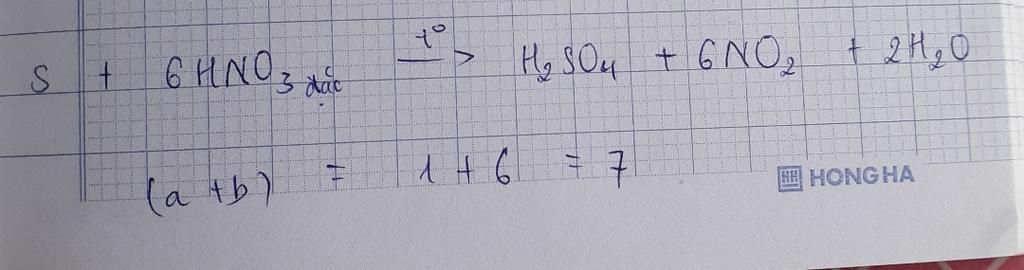 S + 6HNO₃ đặc —t°—> H₂SO₄ + 6NO₂ + 2H₂O
(a+b) = 1 + 6 = 7
HH HONG HA